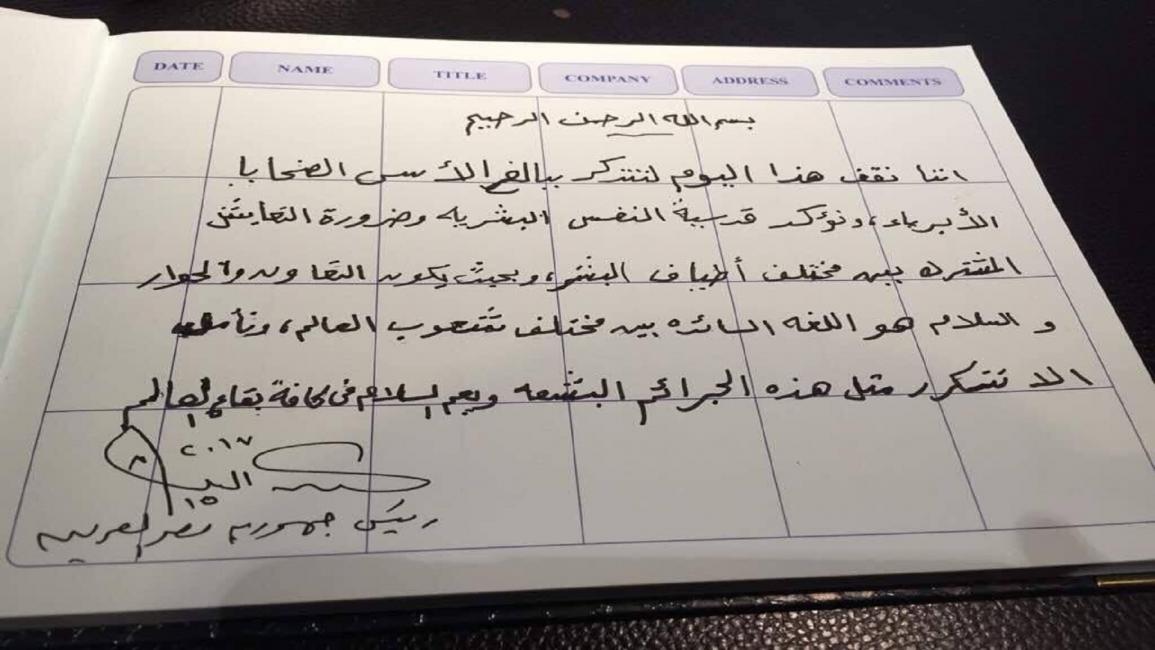 DATE NAME TITLE COMPANY ADDRESS COMMENTS
بسم الله الرحمن الرحيم
اننا نقف هذا اليوم لنتذكر ببالغ الأسى الضحايا
الأبرياء، ونؤكد قدسية النفس البشريه وضرورة التعايش
المشترك بين مختلف أطياف البشر، وبحيث يكون التعاون والحوار
و السلام هو اللغه السائده بين مختلف شعوب العالم، ونأمل
الا تتكرر مثل هذه الجرائم البشعه ويعم السلام فى كافة بقاع العالم
٢٠١٧
١٥
رئيس جمهورية مصر العربيه